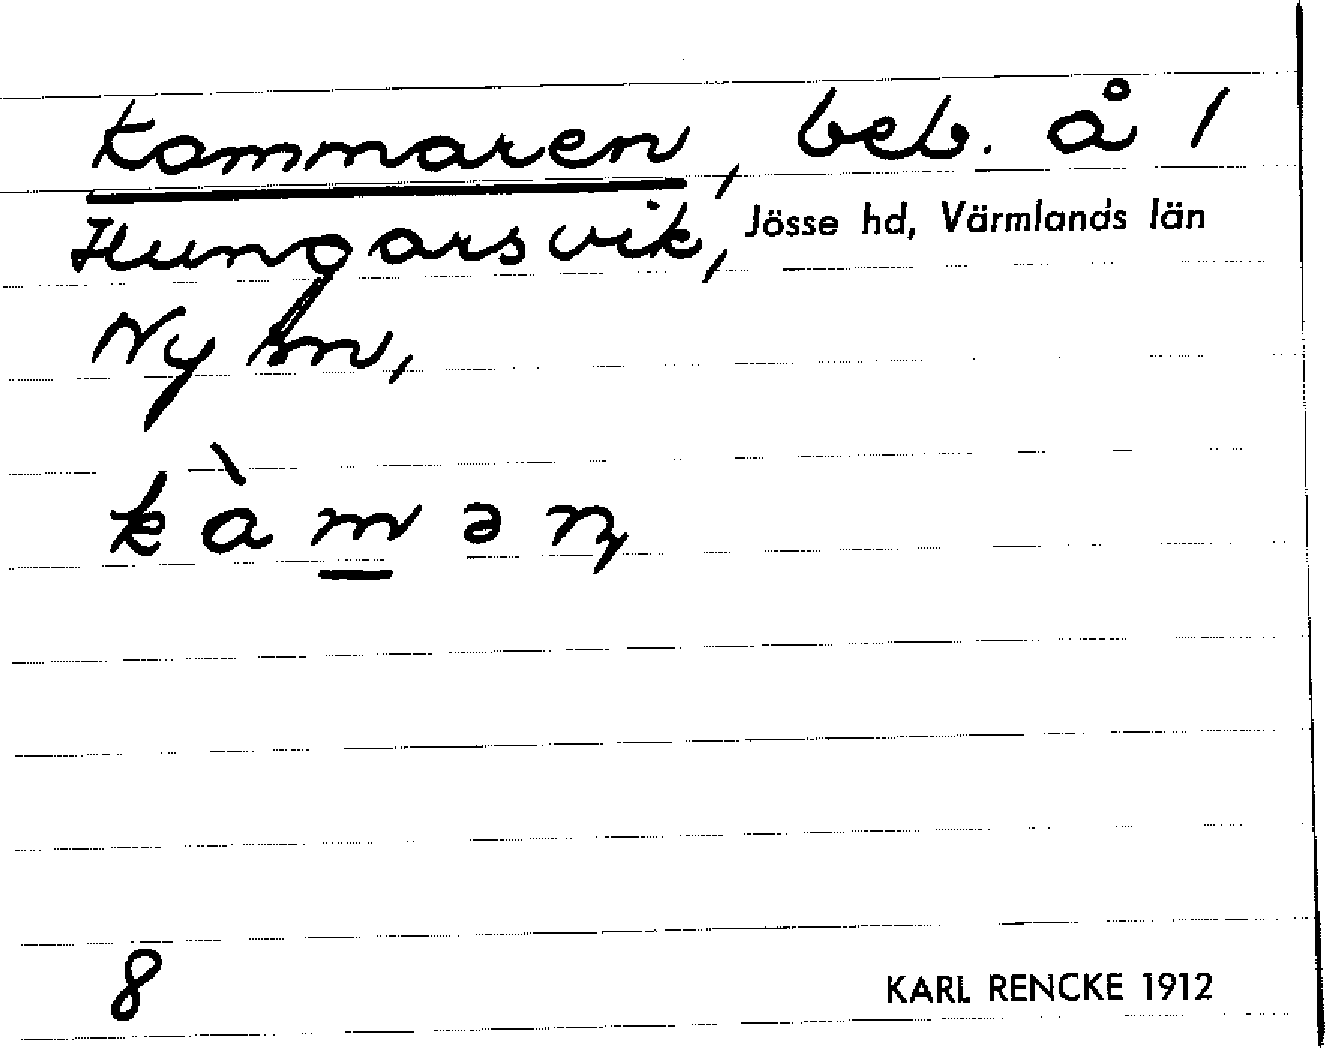 Kammaren, beb. å 1
Hungarsvik, Jösse hd, Värmlands län
Ny sn,
kàmən
8
KARL RENCKE 1912